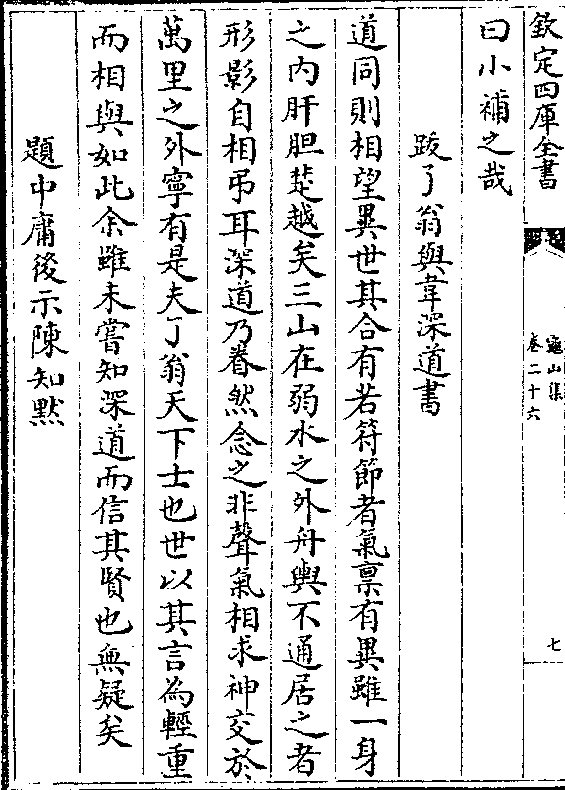 欽定四庫全書
龜山集
卷二十六
七
曰小補之哉
跋了翁與韋深道書
道同則相望異世其合有若符節者氣禀有異雖一身
之内肝胆楚越矣三山在弱水之外舟輿不通居之者
形影自相弔耳深道乃眷然念之非聲氣相求神交於
萬里之外寧有是夫了翁天下士也世以其言為輕重
而相與如此余雖未嘗知深道而信其賢也無疑矣
題中庸後示陳知黙